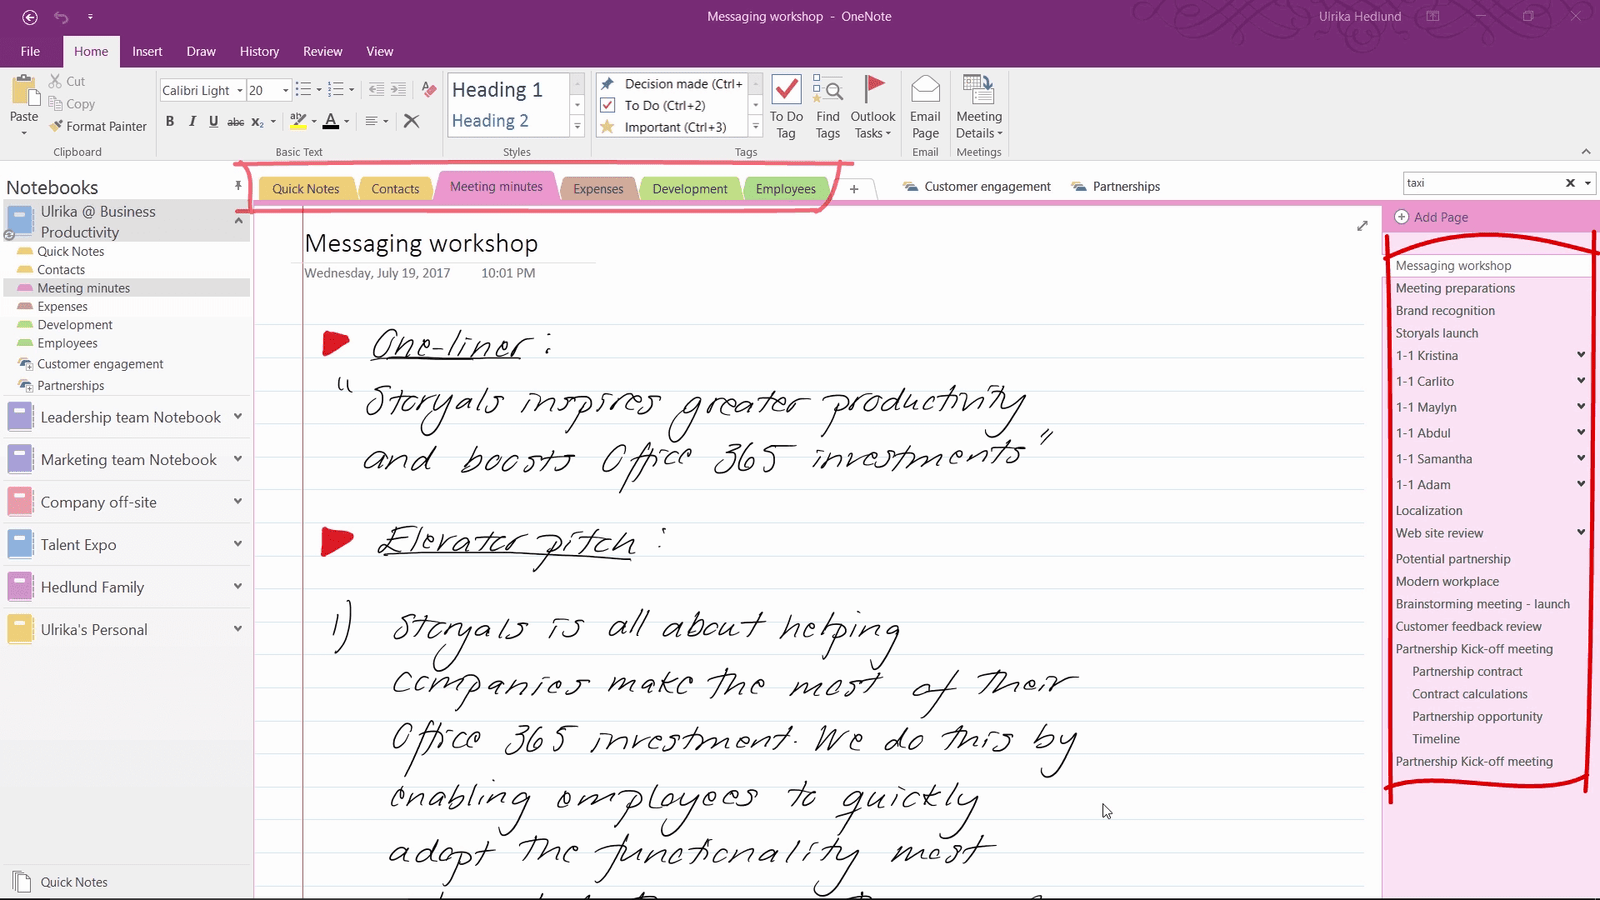 Messaging workshop - OneNote
Ulrika Hedlund
File Home Insert Draw History Review View
Paste
Cut
Copy
Format Painter
Clipboard
Calibri Light 20
B I U abc X₂ A
Basic Text
Heading 1
Heading 2
Styles
Decision made (Ctrl+
To Do (Ctrl+2)
Important (Ctrl+3)
To Do Tag
Find Tags
Outlook Tasks
Tags
Email Page
Email
Meeting Details
Meetings
Notebooks
Ulrika @ Business
Productivity
Quick Notes
Contacts
Meeting minutes
Expenses
Development
Employees
Customer engagement
Partnerships
Leadership team Notebook
Marketing team Notebook
Company off-site
Talent Expo
Hedlund Family
Ulrika's Personal
Quick Notes
Quick Notes Contacts Meeting minutes Expenses Development Employees + Customer engagement Partnerships
taxi
Messaging workshop
Wednesday, July 19, 2017 10:01 PM
One-liner :
"Storyals inspires greater productivity
and boosts Office 365 investments"
Elevator pitch :
1) Storyals is all about helping
companies make the most of their
Office 365 investment. We do this by
enabling employees to quickly
adopt the functionality most
Add Page
Messaging workshop
Meeting preparations
Brand recognition
Storyals launch
1-1 Kristina
1-1 Carlito
1-1 Maylyn
1-1 Abdul
1-1 Samantha
1-1 Adam
Localization
Web site review
Potential partnership
Modern workplace
Brainstorming meeting - launch
Customer feedback review
Partnership Kick-off meeting
Partnership contract
Contract calculations
Partnership opportunity
Timeline
Partnership Kick-off meeting